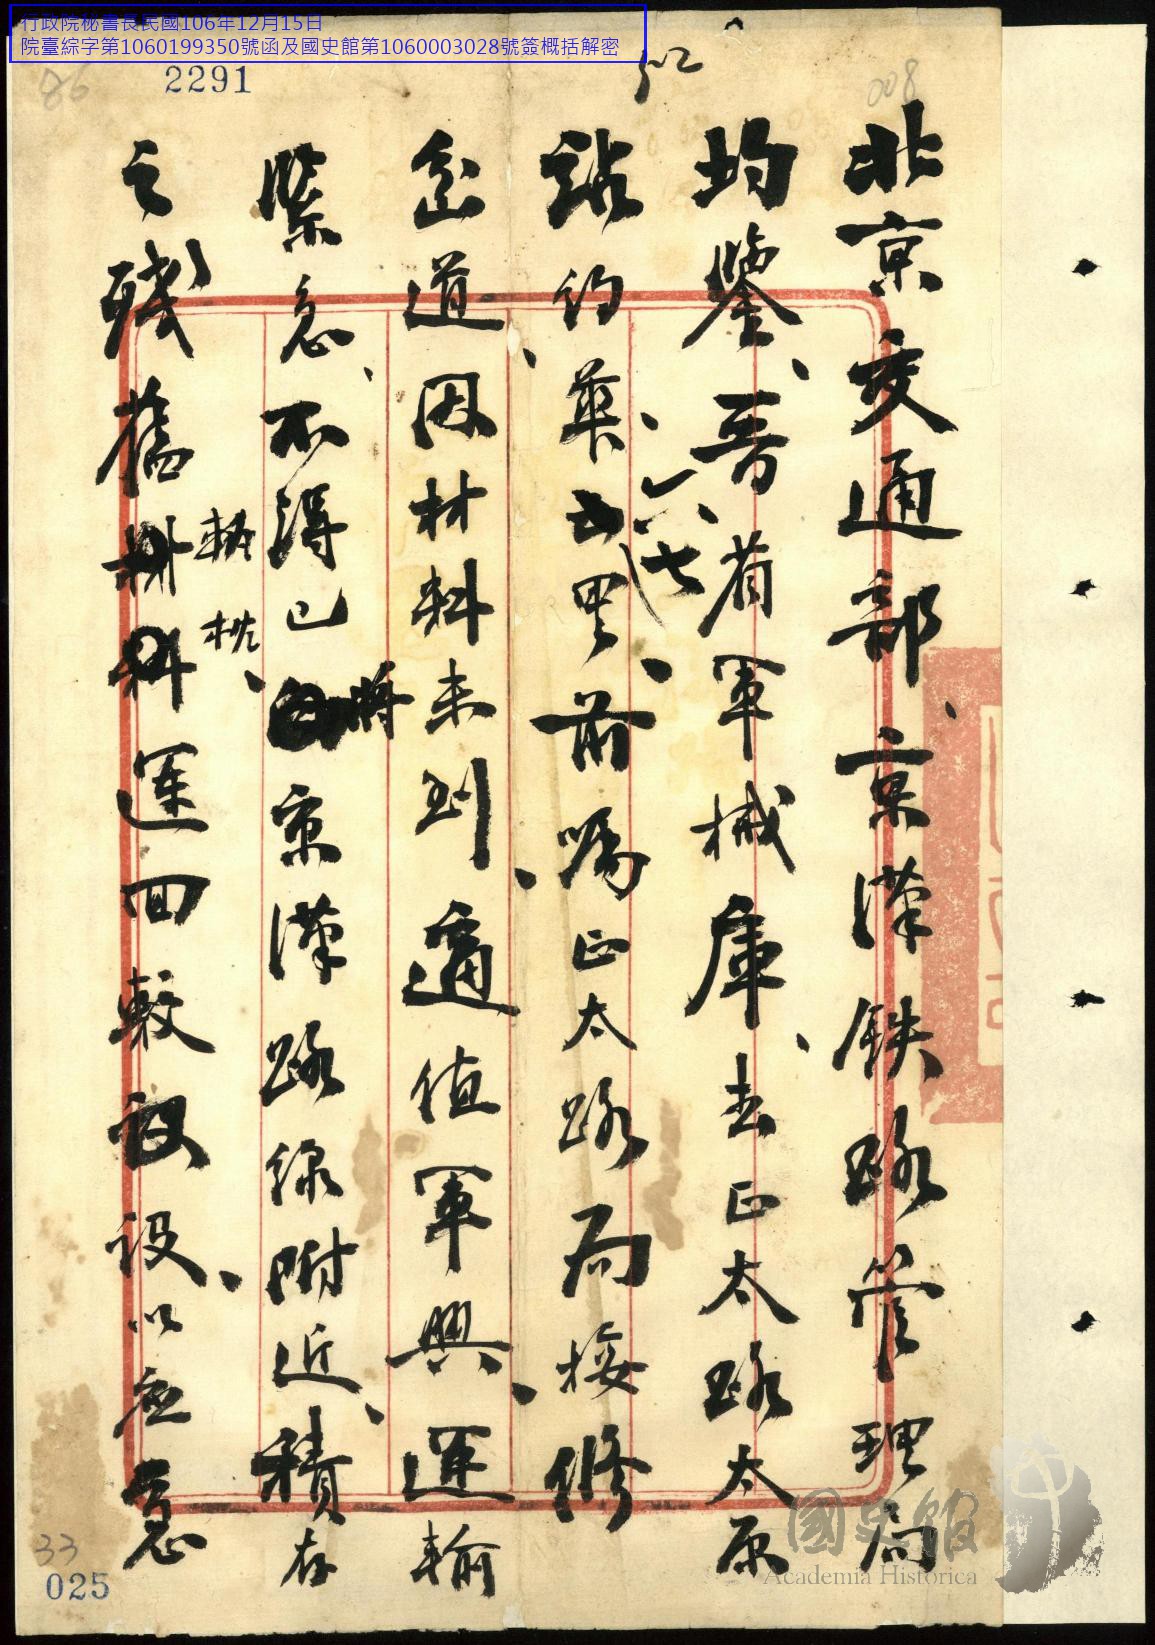 行政院秘書長民國106年12月15日
院臺綜字第1060199350號函及國史館第1060003028號簽概括解密
2291
86
008
北京交通部、京漢鉄路管理局
均鑒、晋省軍械庫、去正太路太原
站約華里、前嘱正太路局接修
六七
岔道、因材料未到、適值軍興、運輸
緊急、不得已將京漢路線附近、積存
之殘舊軌枕、運回敷設、以应急
33
025
國史館
Academia Historica